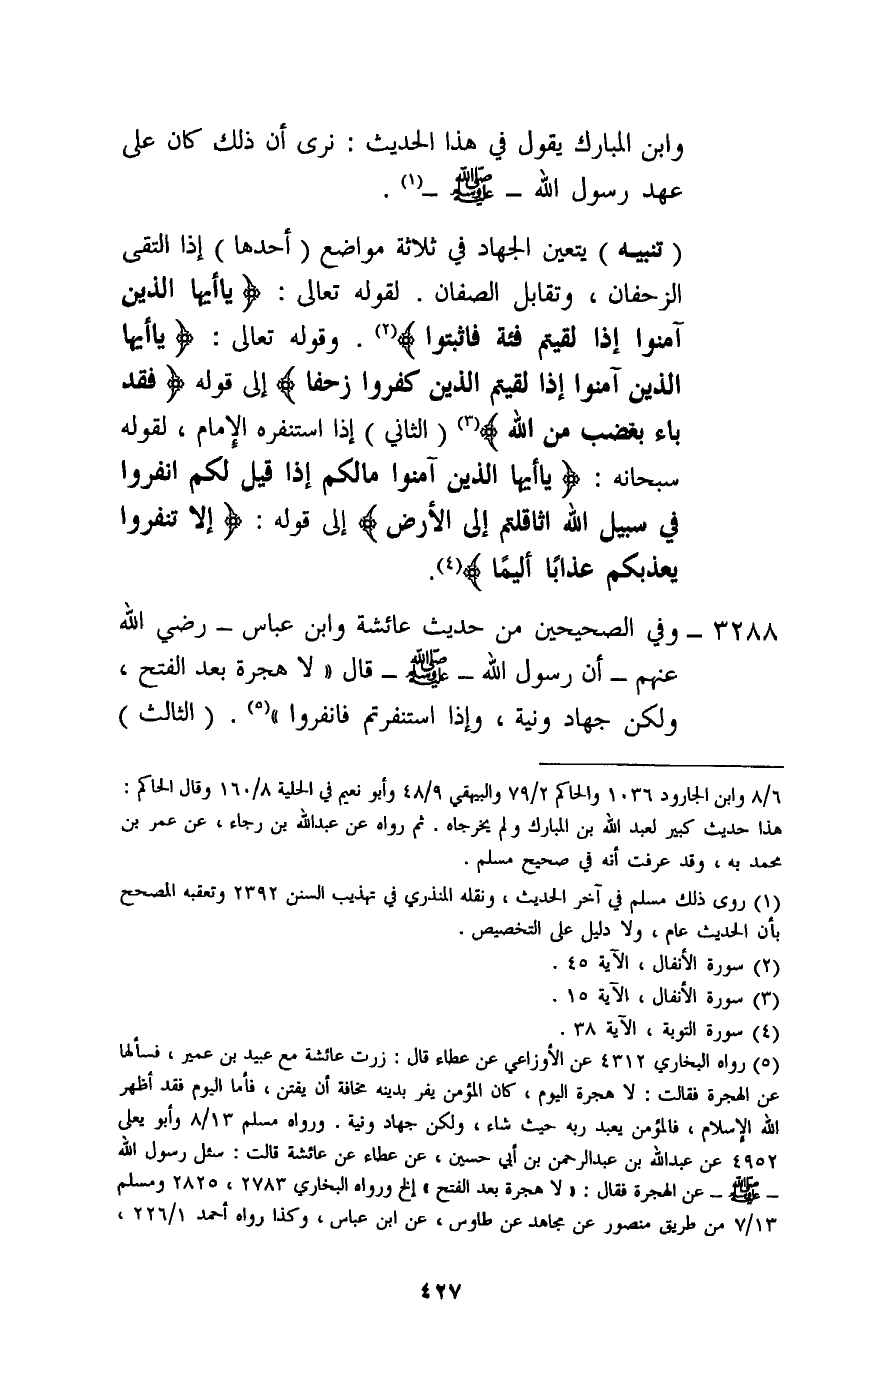 وابن المبارك يقول في هذا الحديث : نرى أن ذلك كان على
عهد رسول الله ــ ﷺ ــ(١) .
( تنبيه ) يتعين الجهاد في ثلاثة مواضع ( أحدها ) إذا التقى
الزحفان ، وتقابل الصفان . لقوله تعالى : ﴿ ياأيها الذين
آمنوا إذا لقيتم فئة فاثبتوا ﴾(٢) . وقوله تعالى : ﴿ ياأيها
الذين آمنوا إذا لقيتم الذين كفروا زحفا ﴾ إلى قوله ﴿ فقد
باء بغضب من الله ﴾(٣) ( الثاني ) إذا استنفره الإمام ، لقوله
سبحانه : ﴿ ياأيها الذين آمنوا مالكم إذا قيل لكم انفروا
في سبيل الله اثاقلتم إلى الأرض ﴾ إلى قوله : ﴿ إلا تنفروا
يعذبكم عذابًا أليمًا ﴾(٤).
٣٢٨٨ ــ وفي الصحيحين من حديث عائشة وابن عباس ــ رضي الله
عنهم ــ أن رسول الله ــ ﷺ ــ قال « لا هجرة بعد الفتح ،
ولكن جهاد ونية ، وإذا استنفرتم فانفروا »(٥) . ( الثالث )
٨/٦ وابن الجارود ١٠٣٦ والحاكم ٧٩/٢ والبيهقي ٤٨/٩ وأبو نعيم في الحلية ١٦٠/٨ وقال الحاكم :
هذا حديث كبير لعبد الله بن المبارك ولم يخرجاه . ثم رواه عن عبدالله بن رجاء ، عن عمر بن
محمد به ، وقد عرفت أنه في صحيح مسلم .
(١) روى ذلك مسلم في آخر الحديث ، ونقله المنذري في تهذيب السنن ٢٣٩٢ وتعقبه المصحح
بأن الحديث عام ، ولا دليل على التخصيص .
(٢) سورة الأنفال ، الآية ٤٥ .
(٣) سورة الأنفال ، الآية ١٥ .
(٤) سورة التوبة ، الآية ٣٨ .
(٥) رواه البخاري ٤٣١٢ عن الأوزاعي عن عطاء قال : زرت عائشة مع عبيد بن عمير ، فسألها
عن الهجرة فقالت : لا هجرة اليوم ، كان المؤمن يفر بدينه مخافة أن يفتن ، فأما اليوم فقد أظهر
الله الإسلام ، فالمؤمن يعبد ربه حيث شاء ، ولكن جهاد ونية . ورواه مسلم ٨/١٣ وأبو يعلى
٤٩٥٢ عن عبدالله بن عبدالرحمن بن أبي حسين ، عن عطاء عن عائشة قالت : سئل رسول الله
ــ ﷺ ــ عن الهجرة فقال : « لا هجرة بعد الفتح » إلخ ورواه البخاري ٢٧٨٣ ، ٢٨٢٥ ومسلم
٧/١٣ من طريق منصور عن مجاهد عن طاوس ، عن ابن عباس ، وكذا رواه أحمد ٢٢٦/١ ،
٤٢٧